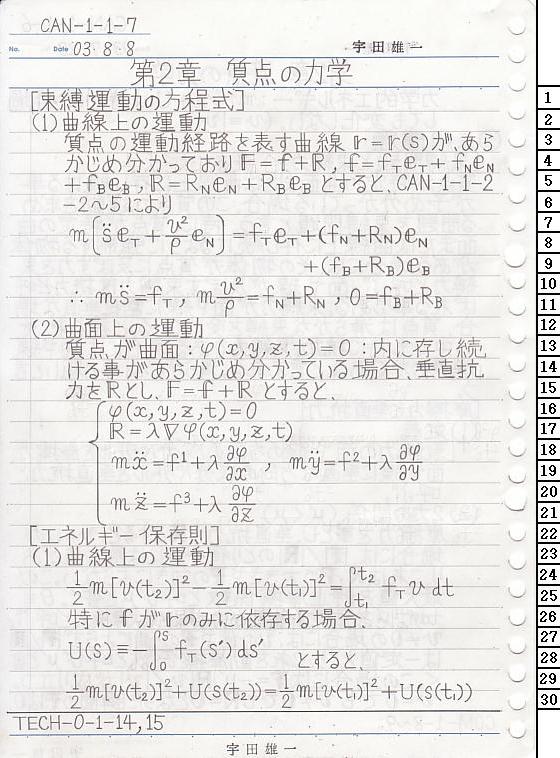 CAN-1-1-7
No. Date '03・8・8 宇田雄一
第2章 質点の力学
[束縛運動の方程式]
(1)曲線上の運動
質点の運動経路を表す曲線 𝕣=𝕣(s)が、あら
かじめ分かっており 𝔽=𝕗+ℝ, 𝕗=f_T𝕖_T+f_N𝕖_N
+f_B𝕖_B, ℝ=R_N𝕖_N+R_B𝕖_B とすると、CAN-1-1-2
-2~5により
m[s̈𝕖_T+v²/ρ 𝕖_N]=f_T𝕖_T+(f_N+R_N)𝕖_N
+(f_B+R_B)𝕖_B
∴ ms̈=f_T, m v²/ρ=f_N+R_N, 0=f_B+R_B
(2)曲面上の運動
質点が曲面:φ(x,y,z,t)=0:内に存し続
ける事があらかじめ分かっている場合、垂直抗
力をℝとし、𝔽=𝕗+ℝ とすると、
φ(x,y,z,t)=0
ℝ=λ∇φ(x,y,z,t)
mẍ=f¹+λ ∂φ/∂x , mÿ=f²+λ ∂φ/∂y
mz̈=f³+λ ∂φ/∂z
[エネルギー保存則]
(1)曲線上の運動
1/2 m[v(t₂)]²-1/2 m[v(t₁)]²=∫_{t₁}^{t₂} f_T v dt
特に𝕗が𝕣のみに依存する場合、
U(s)≡-∫_0^s f_T(s′)ds′ とすると、
1/2 m[v(t₂)]²+U(s(t₂))=1/2 m[v(t₁)]²+U(s(t₁))
TECH-0-1-14,15
宇田雄一
1
2
3
4
5
6
7
8
9
10
11
12
13
14
15
16
17
18
19
20
21
22
23
24
25
26
27
28
29
30